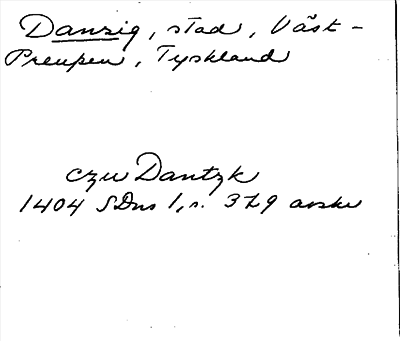 Danzig, stad, Väst-
Preuβen, Tyskland
czu Dantzk
1404 SDns 1, s. 379 avskr